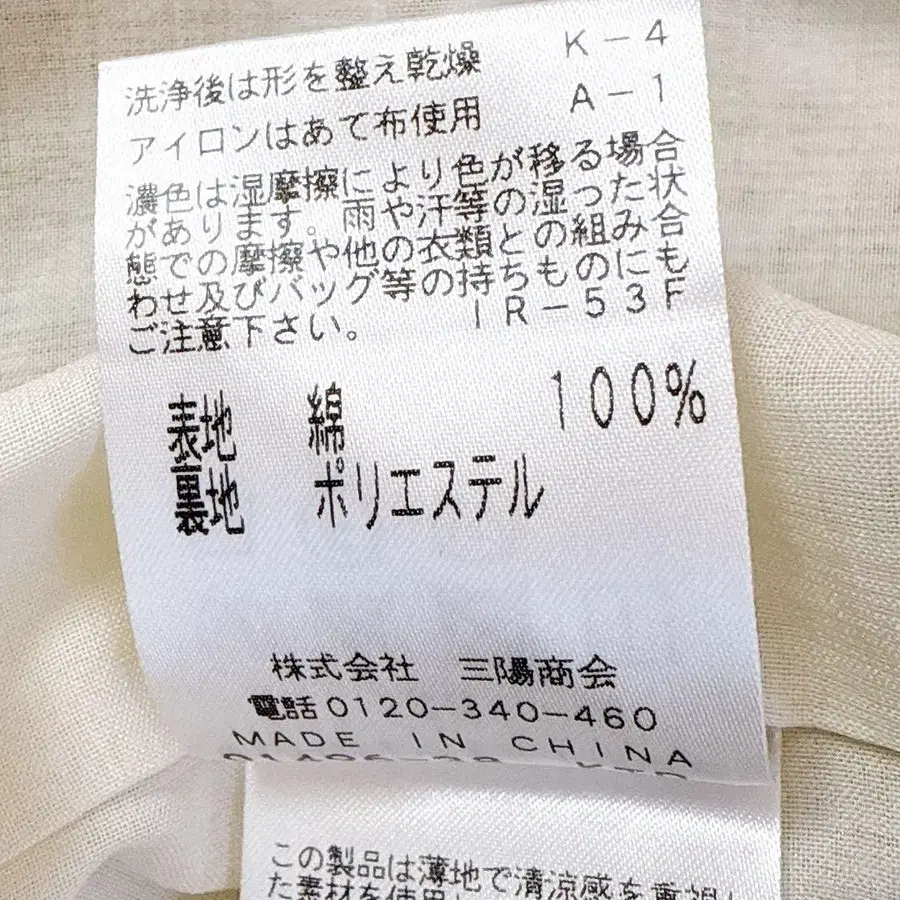 洗浄後は形を整え乾燥 K-4
アイロンはあて布使用 A-1
濃色は湿摩擦により色が移る場合
があります。雨や汗等の湿った状
態での摩擦や他の衣類との組み合
わせ及びバッグ等の持ちものにも
ご注意下さい。 IR-53F
表地 綿 100%
裏地 ポリエステル
株式会社 三陽商会
電話0120-340-460
MADE IN CHINA
この製品は薄地で清涼感を重視し
た素材を使用